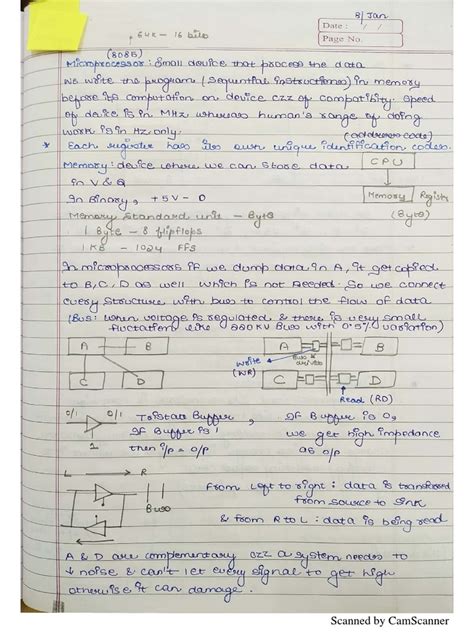 8/Jan
Date : / /
Page No.
64K - 16 bits
(8085)
Microprocessor : Small device that process the data
We write the program (Sequential instructions) in memory
before its computation on device czz of compatibity. Speed
of device is in MHz whereas human's range of doing
work is in Hz only.
(address code)
* Each register has its own unique identification codes.
Memory : device where we can store data
in V & Q
CPU
In Binary, +5V - 0
Memory Register
Memory Standard unit - Byte
(Byte)
1 Byte - 8 flipflops
1 KB - 1024 FFs
In microprocessors if we dump data in A, it get copied
to B, C, D as well which is not needed. So we connect
every structure with bus to control the flow of data
(Bus: when voltage is regulated & there is very small
fluctation like 220KV Bus with 0.5% variation)
A B
C D
Write
(WR)
Bus
A B
C D
Read (RD)
0/1 0/1
1
Tristate Buffer,
If Buffer is 1
then i/p = o/p
If Buffer is 0,
we get high impedance
as o/p
L R
Bus
From Left to right : data is transferred
from source to sink
& from R to L : data is being read
A & D are complementary czz a system needs to
↓ noise & can't let every signal to get high
otherwise it can damage.
Scanned by CamScanner